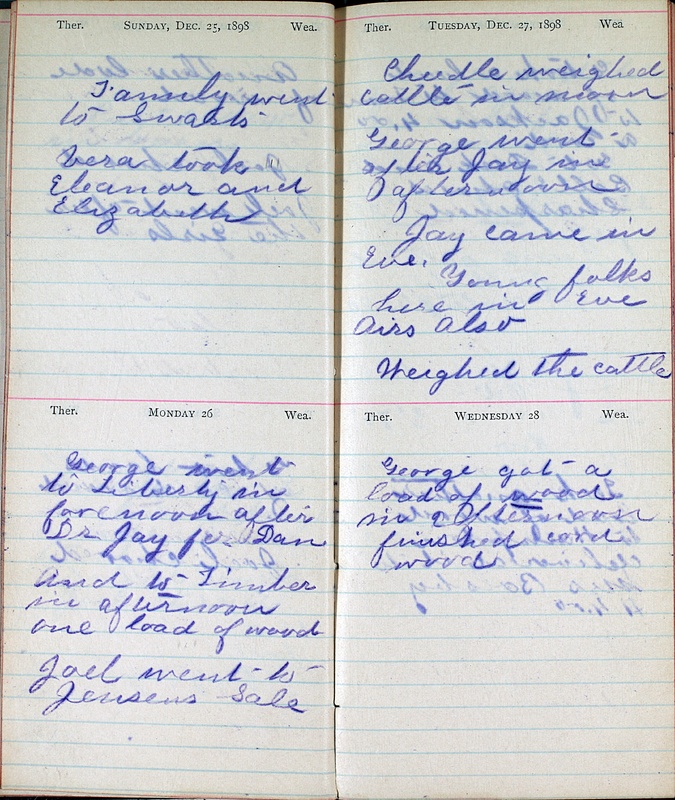 Ther. Sunday, Dec. 25, 1898 Wea.
Family went
to Swarts
Vera took
Eleanor and
Elizabeth
Monday 26
Ther. Wea.
George went
to Liberty in
forenoon after
Dr Jay for Dan
and to Timber
in afternoon
one load of wood
Joel went to
Jensens Sale
Ther. Tuesday, Dec. 27, 1898 Wea
Cheedle weighed
cattle in noon
George went
after Jay in
afternoon
Jay came in
Eve. Young folks
here in Eve
Airs also
Weighed the cattle
Ther. Wednesday 28 Wea.
George got a
load of wood
in afternoon
finished cord
wood